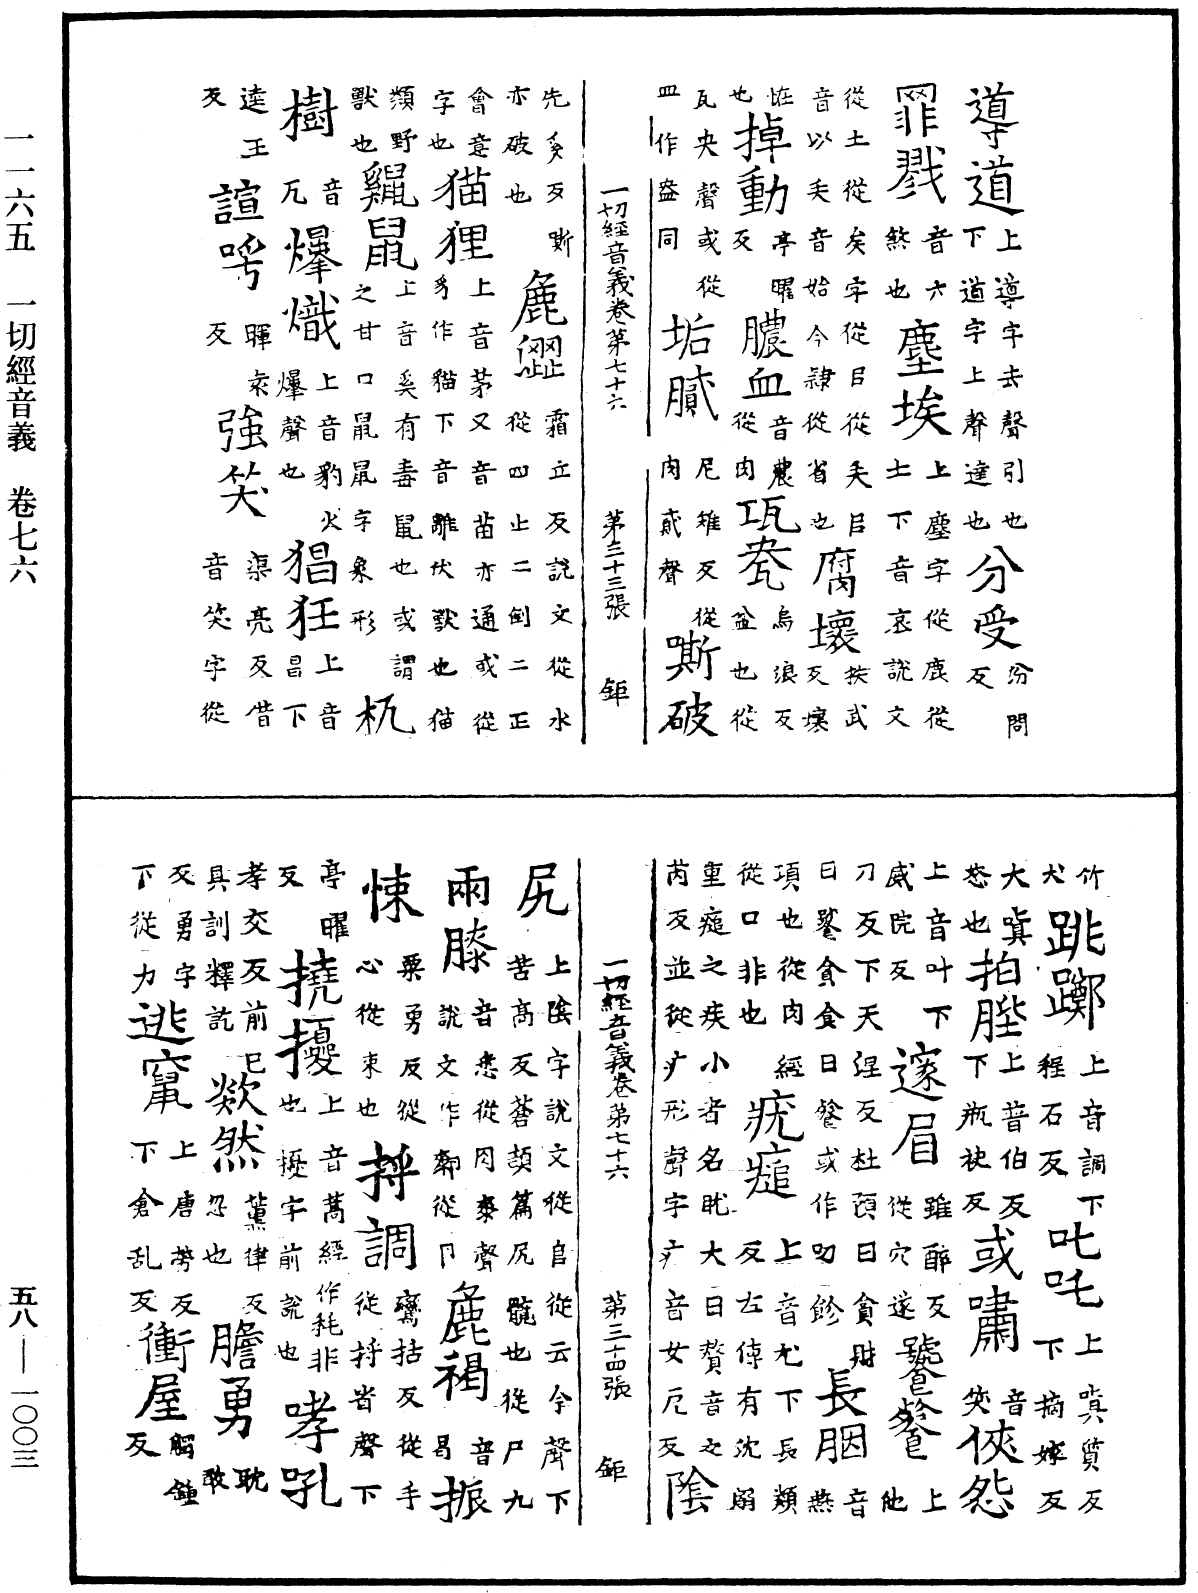 一一六五　一切經音義　卷七六
五八——一〇〇三
導道上導字去聲引也下道字上聲達也分受汾問反
罪戮音六煞也塵埃上塵字從鹿從土下音哀說文
從土從矣字從㠯從矢㠯音以矢音始今隸從省也腐壞扶武反壞
恠也掉動亭曜反膿血音農從肉瓨㼜烏浪反盆也從
瓦央聲或從皿作盎同垢膩尼雉反從肉貳聲嘶破
一切經音義卷第七十六　第三十三張　鉅
先奚反嘶亦破也麁澀霜立反說文從水從四止二倒二正
會意字也猫狸上音茅又音苗亦通或從豸作貓下音離伏獸也猫
類野獸也鼷鼠上音奚有毒鼠也或謂之甘口鼠鼠字象形杌
樹音兀爆熾上音豹火爆聲也猖狂上音昌下
逵王反諠呺暉袁反強笑渠亮反借音笑字從
竹犬跳躑上音調下程石反叱吒上嗔質反下摘嫁反
大嗔怒也拍髀上普伯反下瓶袂反或嘯音笑俠怨
上音叶下威院反邃眉雖醉反從穴遂饕餮上他
刀反下天涅反杜預曰貪財曰饕貪食曰餮或作叨飻長胭音燕
項也從肉經從口非也疣𤺄上音尤下長類反左傳有沈溺
重𤺄之疾小者名肬大曰贅音之芮反並從疒形聲字疒音女厄反陰
一切經音義卷第七十六　第三十四張　鉅
尻上陰字說文從𨸏從云今聲下苦高反蒼頡篇尻髖也從尸九
兩膝音悉從肉桼聲說文作厀從卩麁褐音曷振
悚粟勇反從心從束也捋調鸞括反從手從捋省聲下
亭曜反撓擾上音蒿經作耗非也擾字前說也哮吼
孝交反前已具訓釋訖欻然薰律反忽也膽勇耽敢
反勇字下從力逃竄上唐勞反下倉乱反衝屋觸鍾反